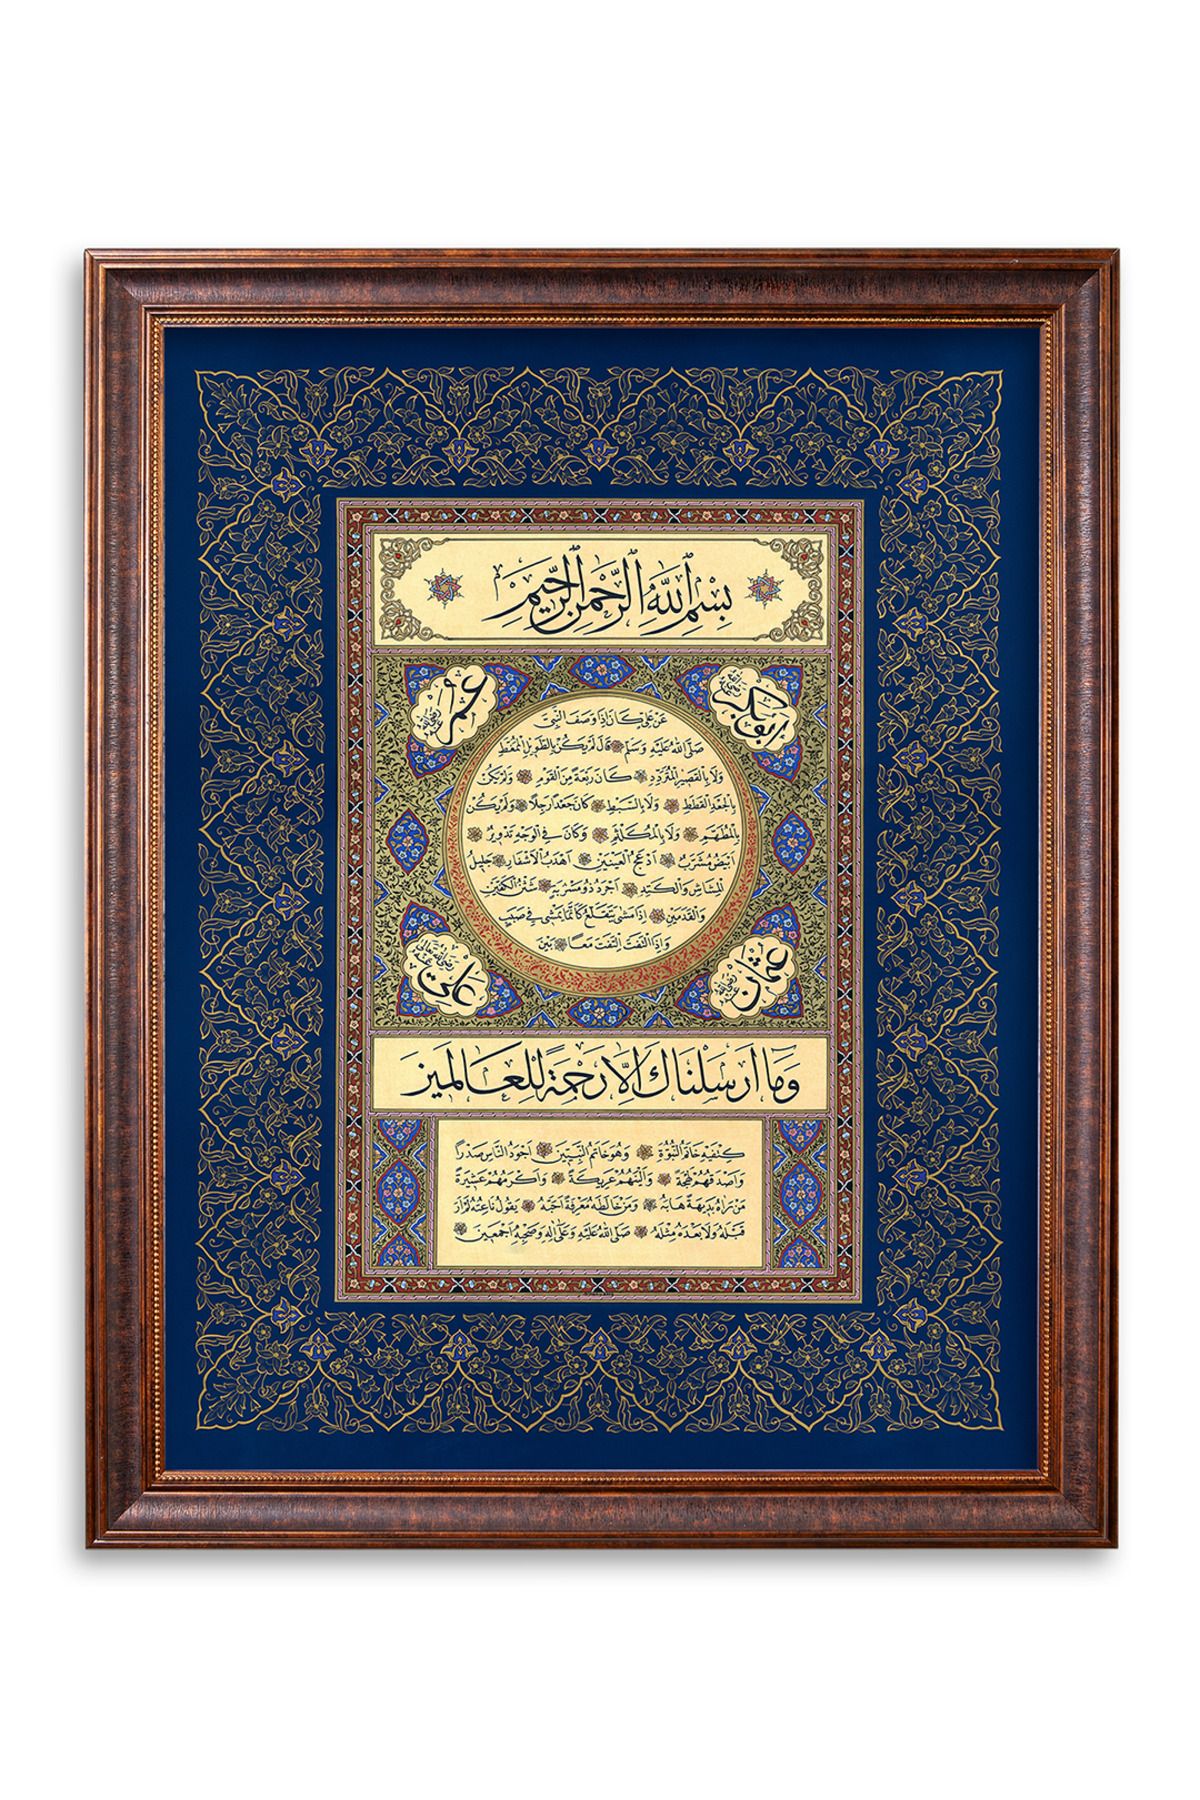 بسم الله الرحمن الرحيم
ابوبكر رضي الله عنه
عمر رضي الله عنه
عن علي كان اذا وصف النبي
صلى الله عليه وسلم قال لم يكن بالطويل الممغط
ولا بالقصير المتردد كان ربعة من القوم ولم يكن
بالجعد القطط ولا بالسبط كان جعدا رجلا ولم يكن
بالمطهم ولا بالمكلثم وكان في الوجه تدوير
ابيض مشرب ادعج العينين اهدب الاشفار جليل
المشاش والكتد اجرد ذو مسربة شثن الكفين
والقدمين اذا مشى يتقلع كأنما يمشي في صبب
واذا التفت التفت معا بين
عثمان رضي الله عنه
علي رضي الله تعالى عنه
وما ارسلناك الا رحمة للعالمين
كتفيه خاتم النبوة وهو خاتم النبيين اجود الناس صدرا
واصدقهم لهجة والينهم عريكة واكرمهم عشيرة
من رآه بديهة هابه ومن خالطه معرفة احبه يقول ناعته لم ار
قبله ولا بعده مثله صلى الله عليه وعلى اله وصحبه اجمعين